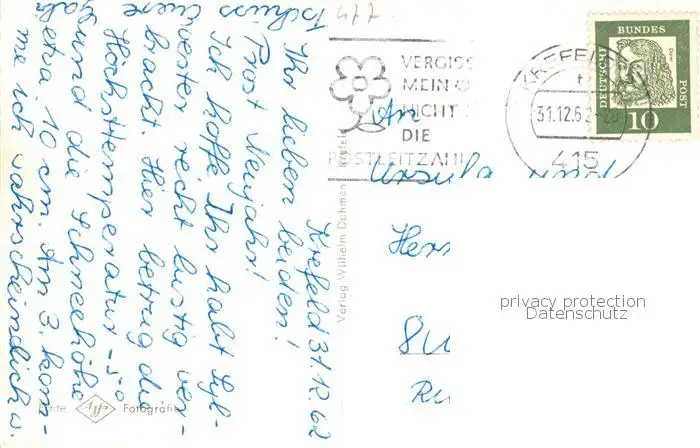 Krefeld 31.12.62
Ihr lieben beiden!
Prost Neujahr!
Ich hoffe Ihr habt Syl-
vester recht lustig ver-
bracht. Hier betrug die
Höchsttemperatur -5°
und die Schneehöhe
etwa 10 cm. Am 3. kom-
me ich wahrscheinlich w.
Tschüss
VERGISS
MEIN
NICHT
DIE
POSTLEITZAHL
KREFELD
31.12.62
415
DEUTSCHE
BUNDES
POST
10
An
Ursula
Herr
Verlag Wilhelm Dahmen Krefeld
Echte
Agfa
Fotografie
privacy protection
Datenschutz